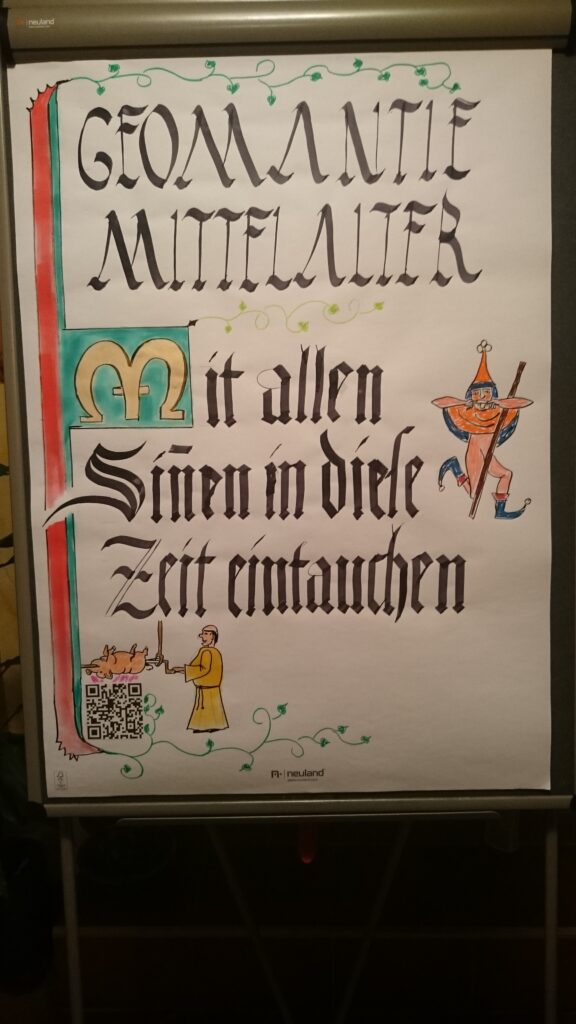 neuland
GEOMANTIE
MITTELALTER
Mit allen
Siñen in diese
Zeit eintauchen
neuland